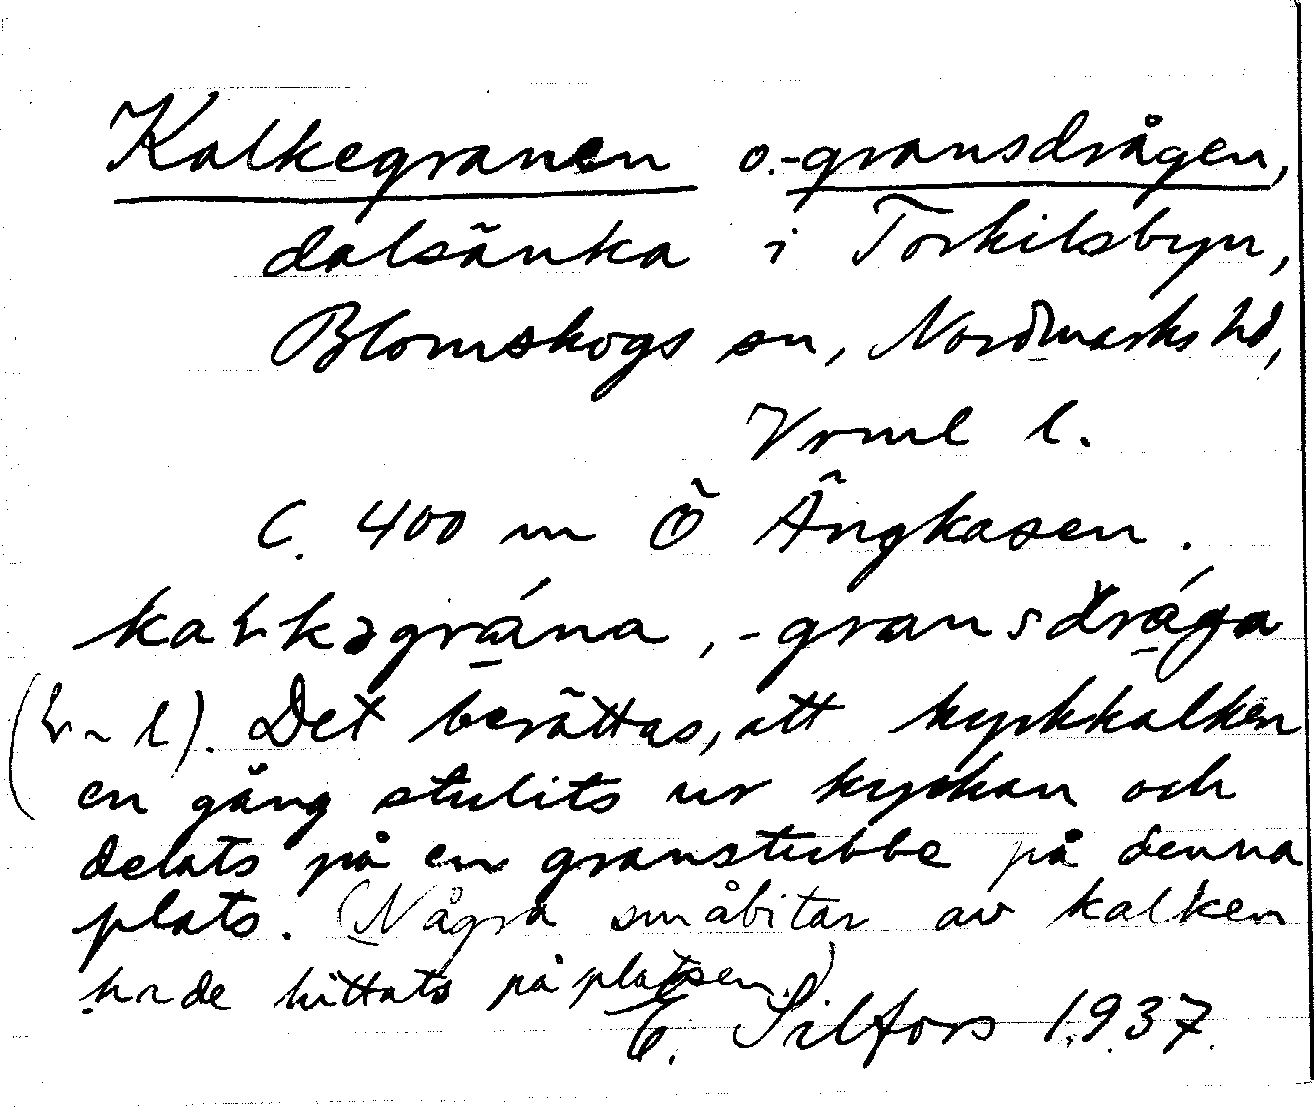 Kalkegranen o.-gransdrågen,
dalsänka i Torkilsbyn,
Blomskogs sn, Nordmarks hd,
Vrml l.
C. 400 m Ö Ängkasen.
-gransdrága
Det berättas, att kyrkkalken
en gång stulits ur kyrkan och
delats på en granstubbe på denna
plats. (Några småbitar av kalken
hade hittats på platsen.)
E. Silfors 1937.